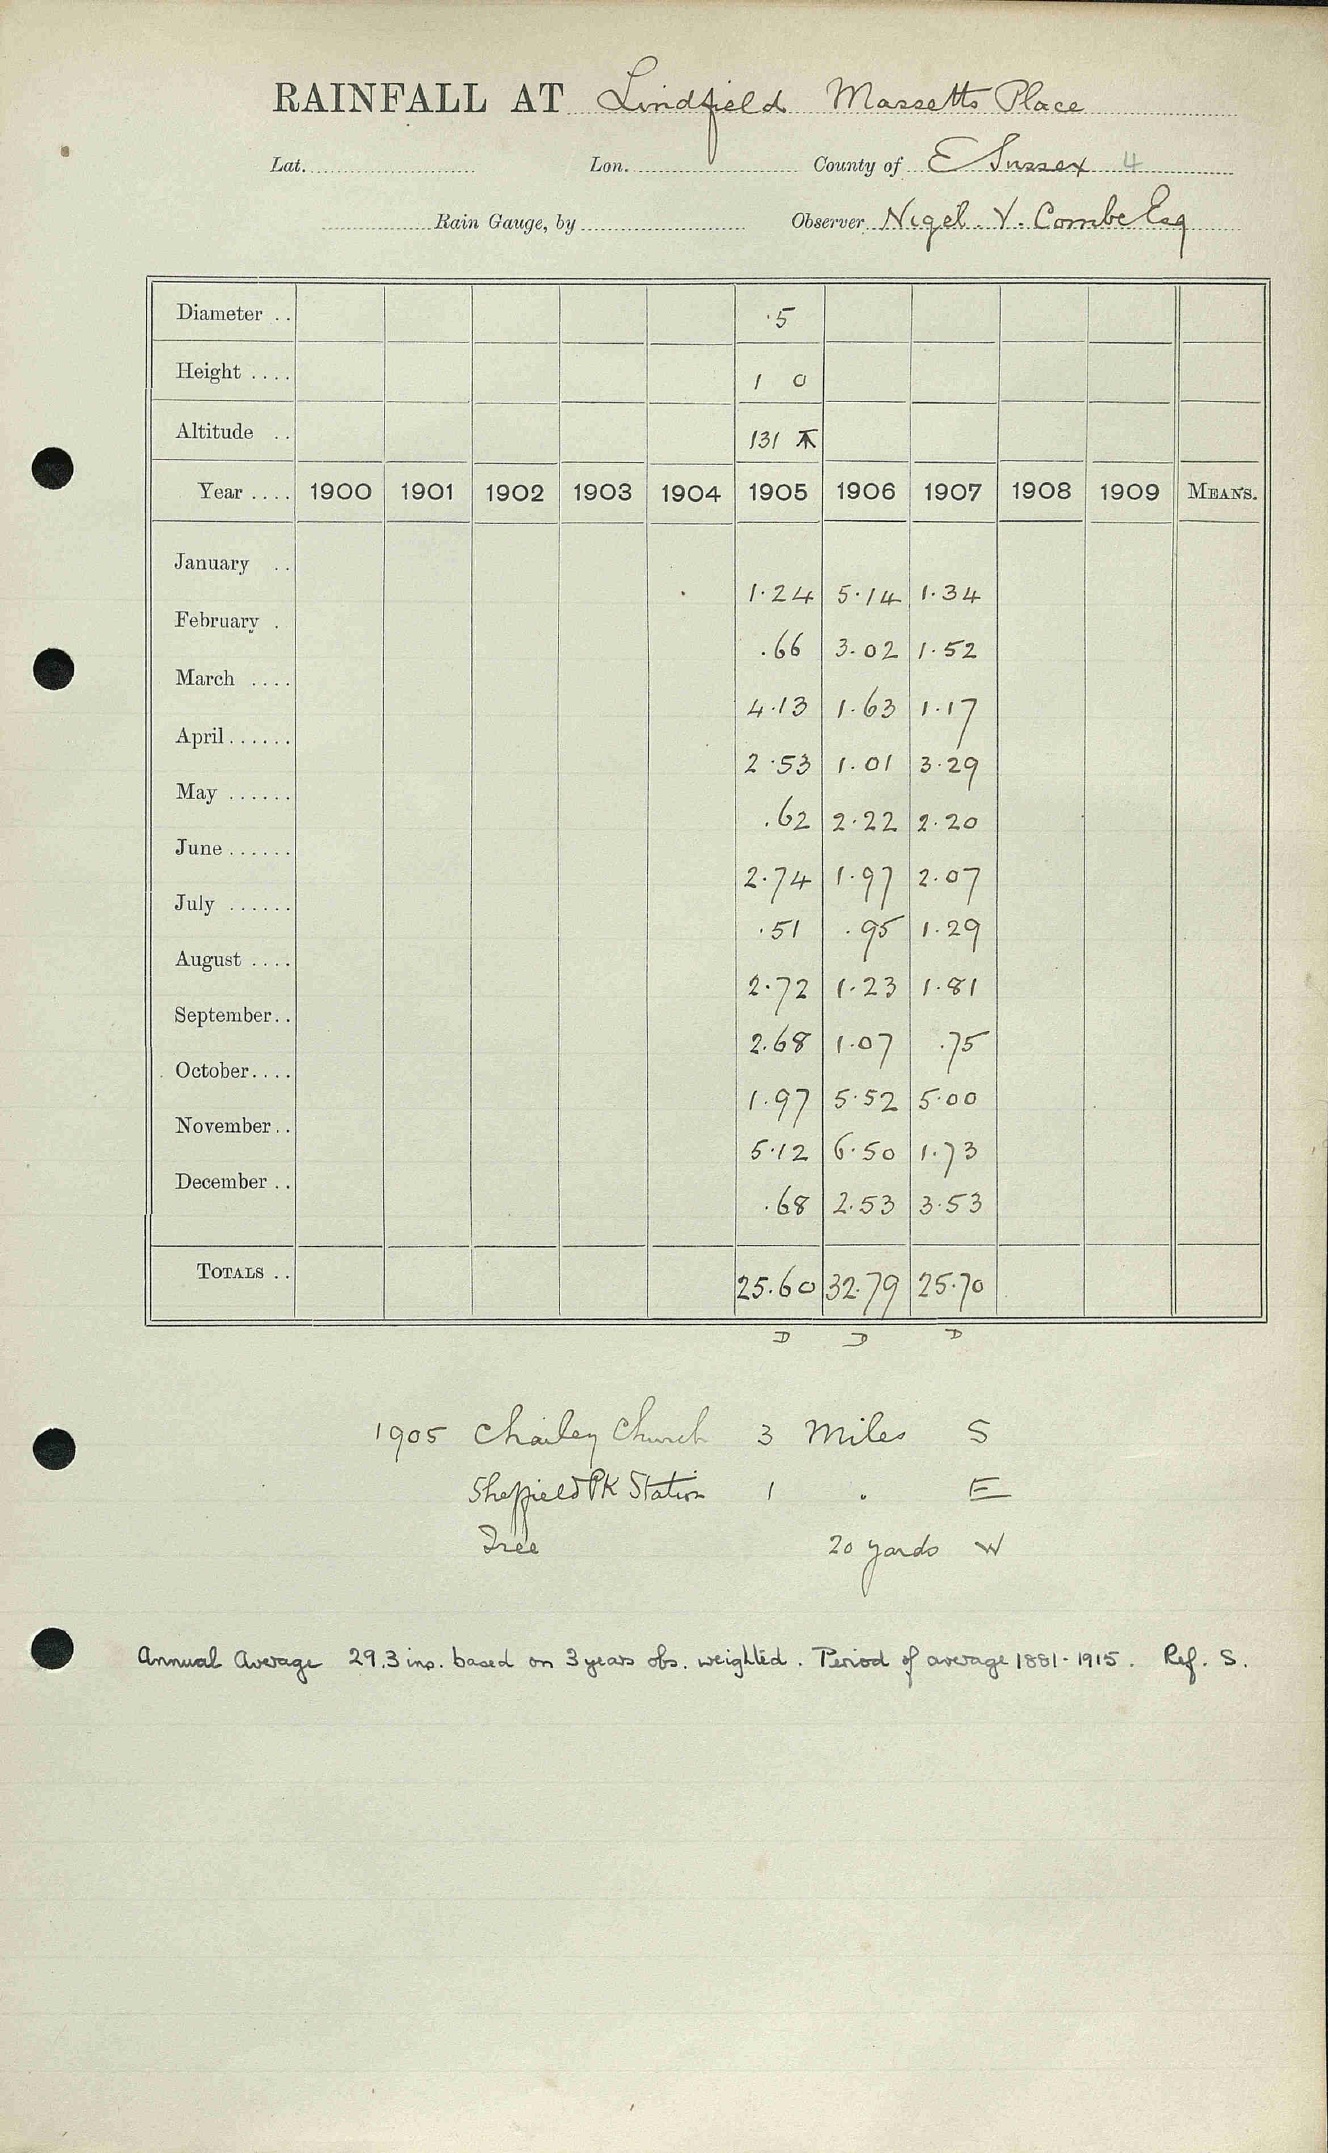 RAINFALL AT Lindfield Massetts Place
Lat. Lon. County of E Sussex 4
Rain Gauge, by Observer Nigel. V. Combe Esq
Diameter .. ·5
Height .... 1 0
Altitude .. 131
Year .... 1900 1901 1902 1903 1904 1905 1906 1907 1908 1909 MEANS.
January .. 1·24 5·14 1·34
February . .66 3.02 1.52
March .... 4.13 1.63 1.17
April...... 2.53 1.01 3.29
May ...... .62 2.22 2.20
June ...... 2.74 1.97 2.07
July ...... .51 .95 1.29
August .... 2.72 1.23 1.81
September.. 2.68 1.07 .75
October.... 1.97 5.52 5.00
November.. 5.12 6.50 1.73
December .. .68 2.53 3.53
TOTALS .. 25.60 32.79 25.70
D D D
1905 Chailey Church 3 Miles S
Sheffield Pk Station 1 . E
Tree 20 yards W
Annual Average 29.3 ins. based on 3 years obs. weighted. Period of average 1881-1915. Ref. S.